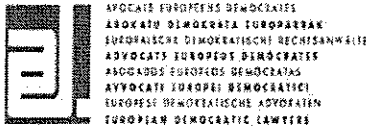 AVOCATS EUROPEENS DEMOCRATES
ABOKATU DEMOKRATA EUROPARRAK
EUROPÄISCHE DEMOKRATISCHE RECHTSANWÄLTE
ADVOCATS EUROPEUS DEMÒCRATES
ABOGADOS EUROPEOS DEMÓCRATAS
AVVOCATI EUROPEI DEMOCRATICI
EUROPESE DEMOKRATISCHE ADVOKATEN
EUROPEAN DEMOCRATIC LAWYERS